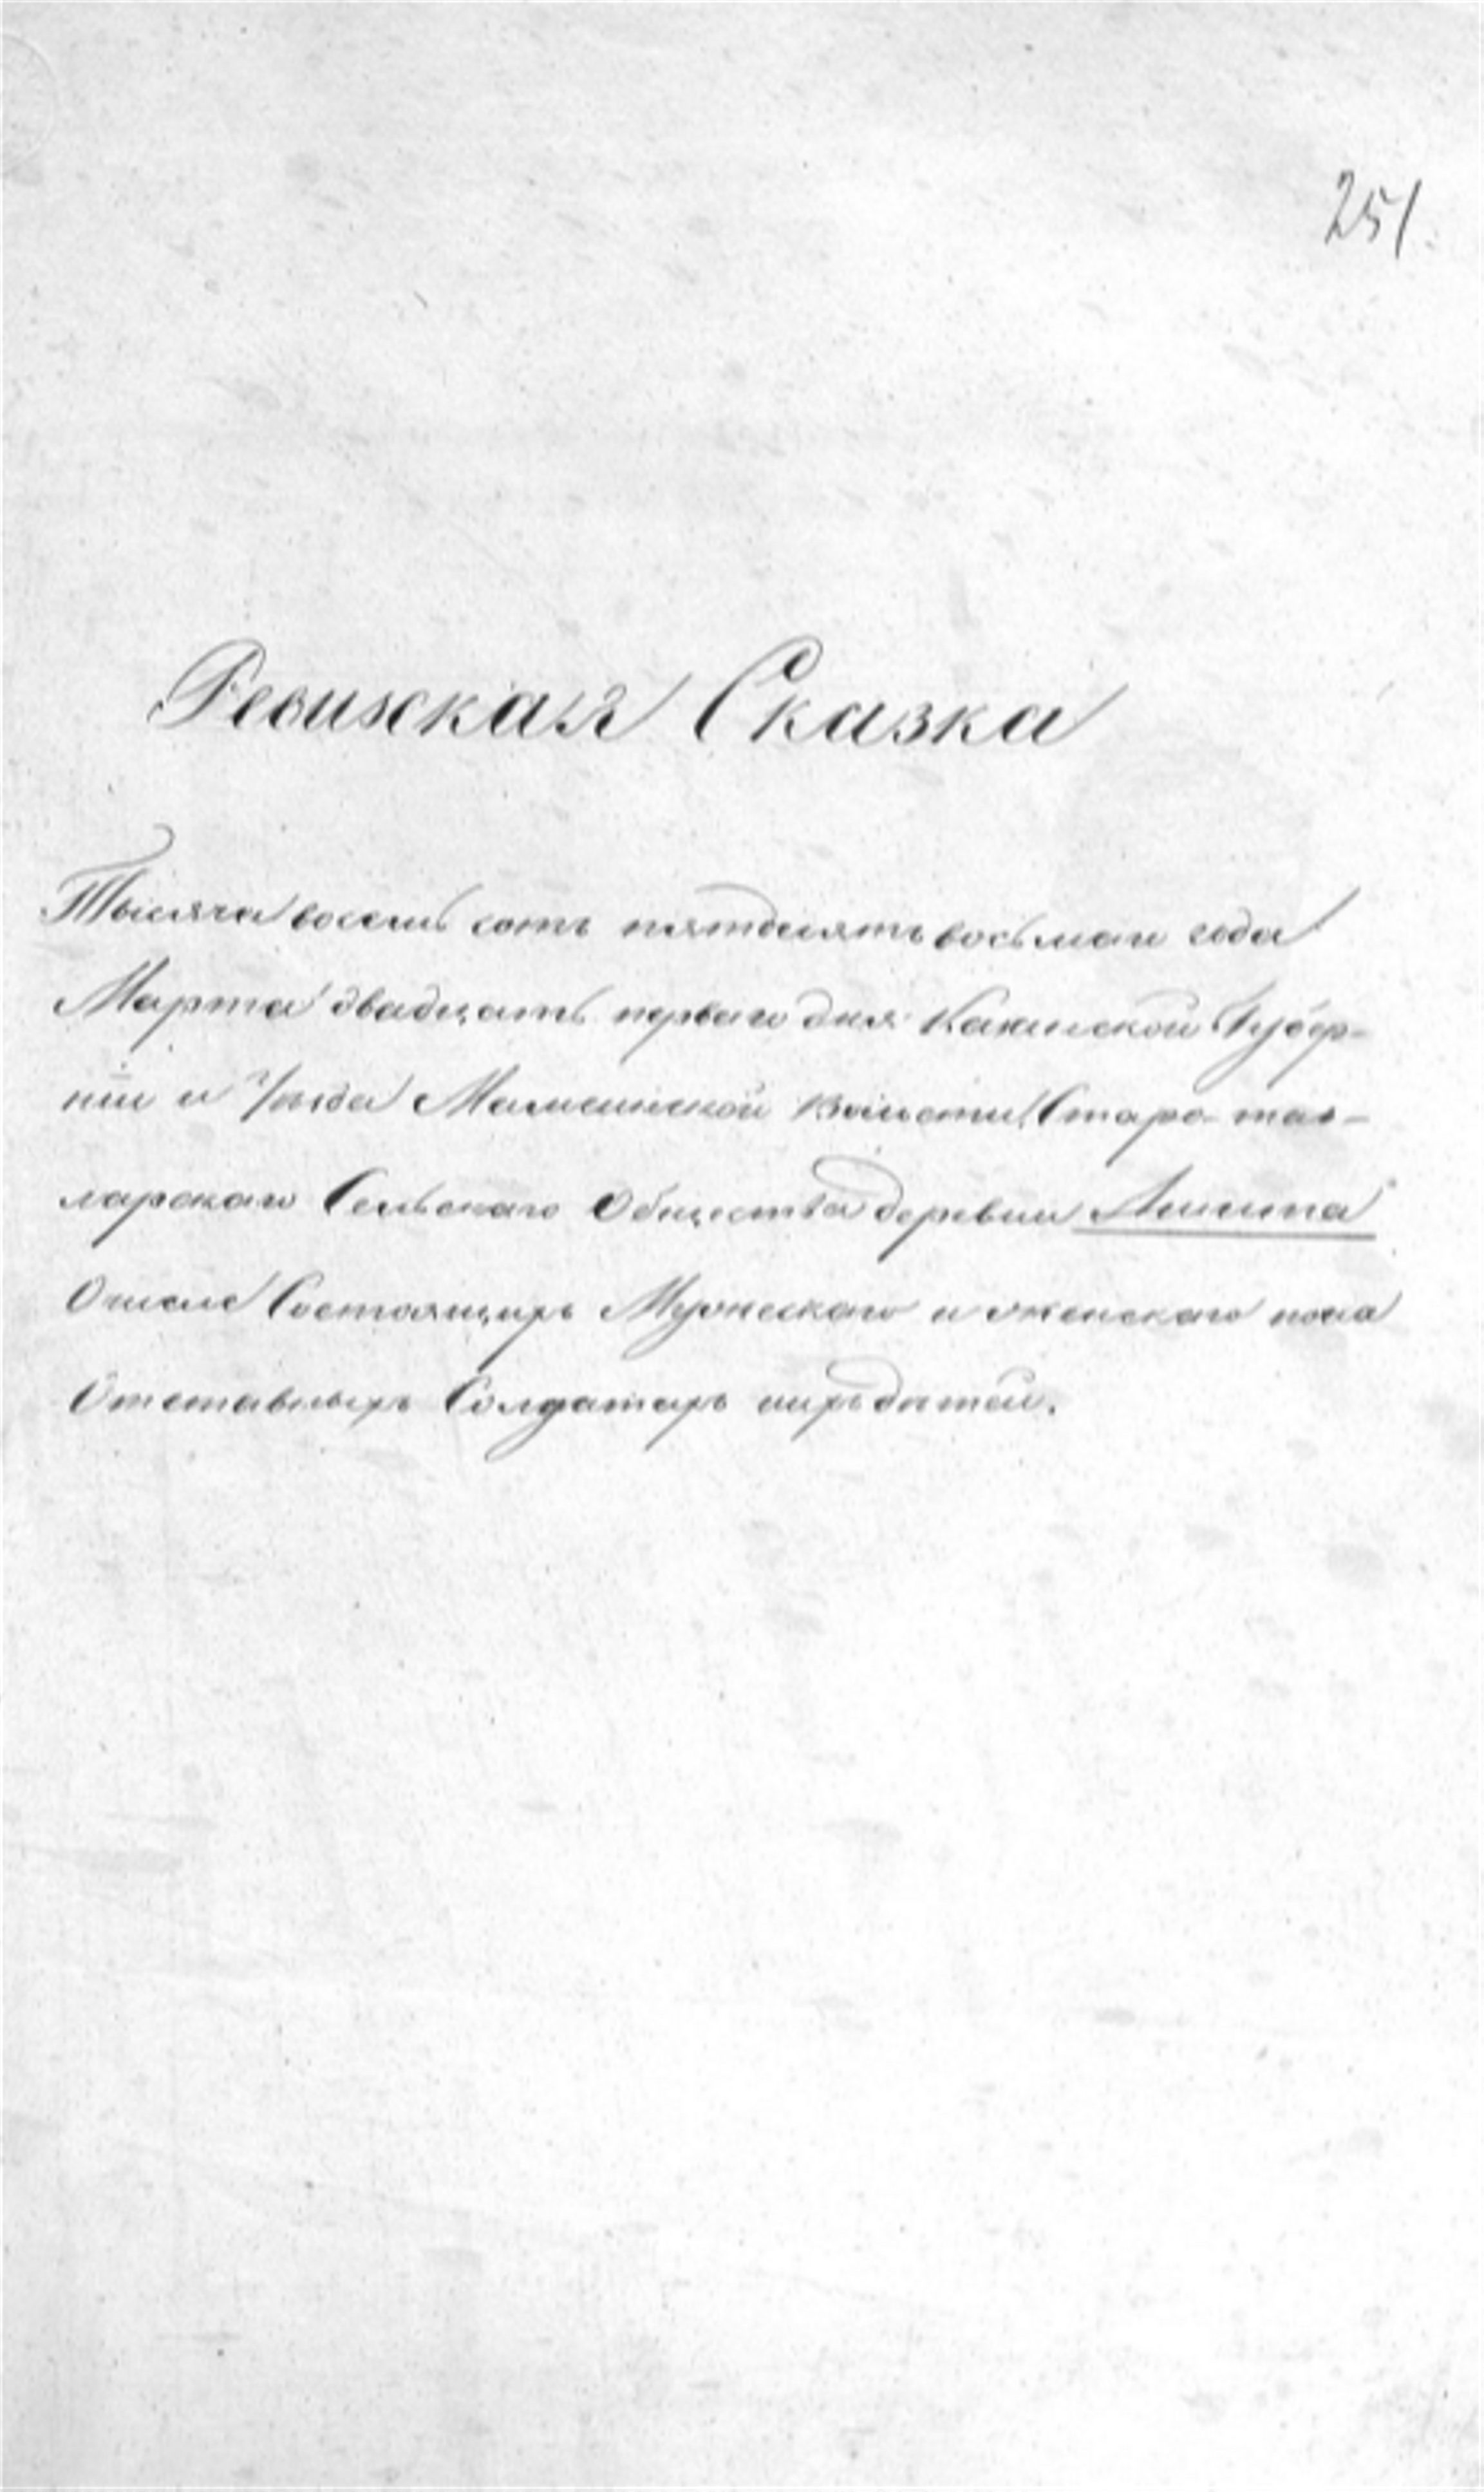 251.
Ревиская Сказка
Тысяча восемь сотъ пятдесятъ восьмаго года
Марта двадцать перваго дня Казанской Губер-
ніи и Уезда Мамсинской волости Старо-таш-
ларскаго Сельскаго Общества деревни Ашита
О числе Состоящихъ Мужескаго и женскаго пола
Отставныхъ Солдатахъ ихъ детей.